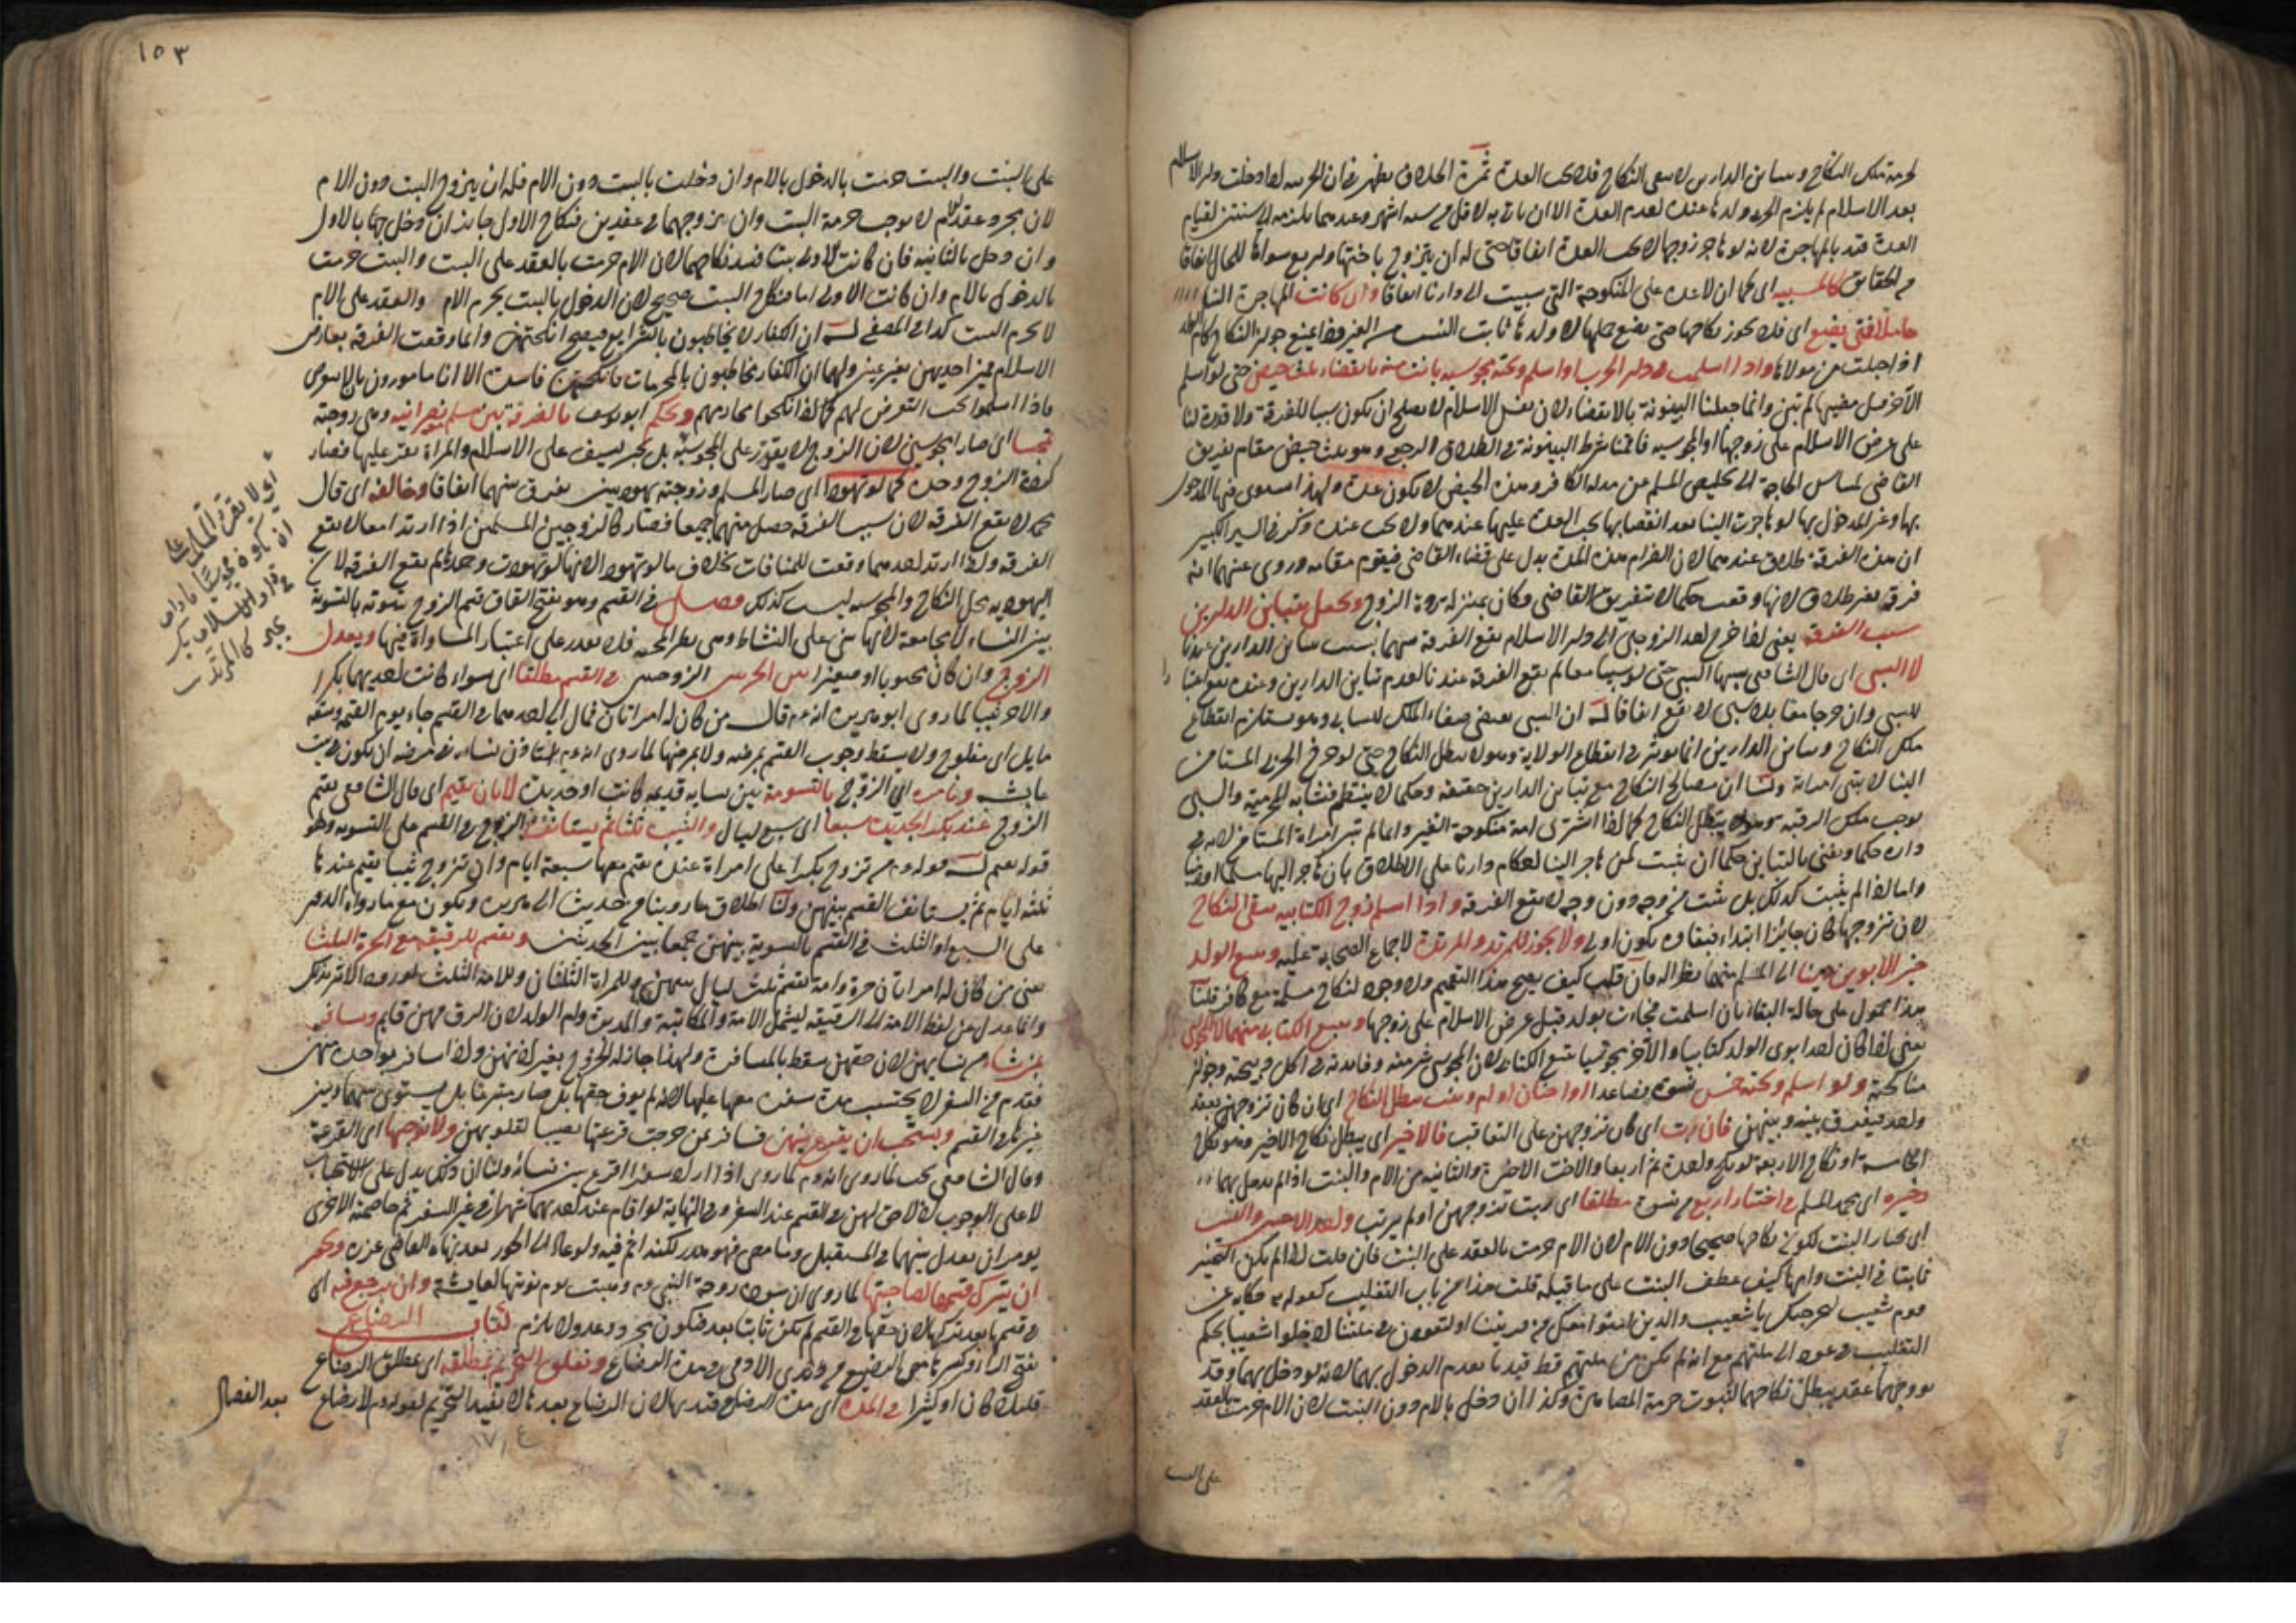 لحرمة ملك النكاح وتباين الدارين لا يبقى النكاح فلا يجب العدة ثمرة الخلاف يظهر في ان الحربية اذا دخلت دار الاسلام
بعد الاسلام لم يلزم الحربي ولدها عنده لعدم العدة الا ان تأتي به لاقل من ستة اشهر وعندهما يلزمه الى سنتين لقيام
العدة قيد بالمهاجرة لانه لو هاجر زوجها لا يجب العدة اتفاقا حتى له ان يتزوج باختها واربع سواها للحال اتفاقا
من الحقائق كالمسبية اى كما ان لا عدة على المنكوحة التي سبيت الى دارنا اتفاقا وان كانت المهاجرة الينا
حاملا فحتى يضع اى فلا يجوز نكاحها حتى تضع حملها لان ولدها ثابت النسب من الغير فيمنع جواز النكاح كام الولد
اذا حبلت من مولاها واذا اسلمت في دار الحرب او اسلم وتحته مجوسية بانت منه بانقضاء ثلث حيض حتى لو اسلم
الآخر قبل مضيها لم تبن وانما جعلنا البينونة بالانقضاء لان نفس الاسلام لا يصلح ان يكون سببا للفرقة ولا قدرة لنا
على عرض الاسلام على زوجها او المجوسية فاقمنا شرط البينونة في الطلاق الرجعي وهو ثلث حيض مقام تفريق
القاضي لمساس الحاجة الى تخليص المسلم من مذلة الكافر وهذه الحيض لا يكون عدة ولهذا استوى فيها المدخول
بها وغير المدخول بها لو هاجرت الينا بعد انقضائها تجب العدة عليها عندهما ولا تجب عنده ذكر في السير الكبير
ان هذه الفرقة طلاق عندهما لان انصرام هذه المدة بدل على قضاء القاضي فيقوم مقامه وروى عنهما انه
فرقة بغير طلاق لانها وقعت حكما لا بتفريق القاضي فكان بمنزلة ردة الزوج ونجعل تباين الدارين
سبب الفرقة يعنى اذا خرج احد الزوجين الى دار الاسلام تقع الفرقة بينهما بسبب تباين الدارين عندنا
لا السبي اى قال الشافعي سببها السبي حتى لو سبيا معا لم تقع الفرقة عندنا لعدم تباين الدارين وعنده تقع
للسبي وان خرجا معا بلا سبي لا تقع اتفاقا له ان السبي يقتضى صفاء الملك للسابي وهو يستلزم انقطاع
ملك النكاح وتباين الدارين انما يؤثر في انقطاع الولاية وهو لا يبطل النكاح حتى لو خرج الحربي المستأمن
الينا لا تبين امرأته ولنا ان مصالح النكاح مع تباين الدارين حقيقة وحكما لا ينتظم فشابه المحرمية والسبي
يوجب ملك الرقبة وهو لا يبطل النكاح كما اذا اشترى امة منكوحة الغير وانما لم تبن امرأة المستأمن لانه في
داره حكما ونعنى بالتباين حكما ان يثبت لمن هاجر الينا احكام دارنا على الاطلاق بان هاجر اليها مسلما او ذميا
واما اذا لم يثبت كذلك بل ثبت من وجه دون وجه لا تقع الفرقة واذا اسلم زوج الكتابية يبقى النكاح
لان تزوجها كان جائزا ابتداء فبقاؤه يكون اولى ولا يجوز للمرتد والمرتدة لاجماع الصحابة عليه ويتبع الولد
خير الابوين دينا اى المسلم منهما نظرا له فان قلت كيف يصح هذا التعميم ولا وجود لنكاح مسلمة مع كافر قلنا
هذا محمول على حالة البقاء بان اسلمت فجاءت بولد قبل عرض الاسلام على زوجها ويتبع الكتابي منهما لا المجوسي
يعنى اذا كان احد ابوى الولد كتابيا والآخر مجوسيا يتبع الكتابي لان المجوسي شر منه وفائدته في اكل ذبيحته وجواز
مناكحته ولو اسلم وتحته خمس نسوة فصاعدا او اختان او ام وبنت يبطل النكاح اى ان كان تزوجهن بعقد
واحد فيفرق بينه وبينهن فان رتب اى كان تزوجهن على التعاقب فالاخير اى يبطل نكاح الاخير وهو نكاح
الخامسة او نكاح الاربعة لو نكح واحدة ثم اربعا والاخت الاخيرة والثانية من الام والبنت اذا لم يدخل بهما
وخيره اى محمد المسلم في اختيار اربع من نسوة مطلقا اى رتب تزوجهن او لم يرتب واحدى الاختين والبنت
اى يختار البنت لكون نكاحها صحيحا دون الام لان الام حرمت بالعقد على البنت فان قلت اذا لم يكن التخيير
ثابتا في البنت وامها كيف عطف البنت على ما قبله قلت هذا من باب التغليب كقوله تع حكاية عن
قوم شعيب لنخرجنك يا شعيب والذين امنوا معك من قريتنا او لتعودن في ملتنا ادخلوا شعيبا بحكم
التغليب في عود الى ملتهم مع انه لم يكن من ملتهم قط قيدنا بعدم الدخول بهما لانه لو دخل بهما وقد
تزوجهما بعقد يبطل نكاحهما لثبوت حرمة المصاهرة وكذا ان دخل بالام دون البنت لان الام حرمت بالعقد
على البنت
١٥٣
على البنت والبنت حرمت بالدخول بالام وان دخلت بالبنت دون الام فله ان يتزوج البنت دون الام
لان مجرد عقد الام لا يوجب حرمة البنت وان تزوجهما في عقدين فنكاح الاول جايز ان دخل بها بالاول
وان دخل بالثانية فان كانت الاولى بنتا فسد نكاحهما لان الام حرمت بالعقد على البنت والبنت حرمت
بالدخول بالام وان كانت الاولى اما فنكاح البنت صحيح لان الدخول بالبنت يحرم الام والعقد على الام
لا يحرم البنت كذا في المصفى له ان الكفار لا يخاطبون بالشرايع فيصح انكحتهم وانما وقعت الفرقة بعارض
الاسلام فيخير احديهن بغير عين ولهما ان الكفار يخاطبون بالمحرمات فانكحتهم فاسدة الا انا مامورون بان لا نتعرض
فاذا اسلموا يجب التعرض لهم كما اذا نكحوا محارمهم ويحكم ابو يوسف بالفرقة بين مسلم ونصرانية وهي زوجته
تمجسا اى صارا مجوسيين لان الزوج لا يقرر على المجوسية بل يجبر بسيف على الاسلام والمرأة تقر عليها فصار
كردة الزوج وحده كما لو تهودا اى صار المسلم وزوجته يهوديين يفرق بينهما اتفاقا وخالفه اى قال
محمد لا يقع الفرقة لان سبب الفرقة حصل منهما جميعا فصار كالزوجين المسلمين اذا ارتدا معا لا يقع
الفرقة واذا ارتد احدهما وقعت للمنافات بخلاف ما لو تهودا لانها لو تهودت وحدها لم يقع الفرقة لان
اليهودية يحل النكاح والمجوسية ليست كذلك فصل في القسم وهو بفتح القاف قسم الزوج بيتوته بالتسوية
بين النساء لا بجامعة لانها تبنى على النشاط وهى نظير المحبة فلا يقدر على اعتبار المساواة فيها ويعدل
الزوج وان كان مجبوبا او صغيرا بين الحرتين الزوجتين في القسم مطلقا اى سواء كانت احديهما بكرا
والاخرى ثيبا لما روى ابو هريرة انه عم قال من كان له امرأتان فمال الى احدهما في القسم جاء يوم القيمة وشقه
مايل اى مفلوج ولا يسقط وجوب القسم بمرضه ولا بمرضها لما روى انه عم استأذن نساءه في مرضه ان يكون في بيت
عايشة ونأمره اى الزوج بالتسوية بين نسايه قديمة كانت او حديثة لا بان يقيم اى قال الشافعي يقيم
الزوج عند بكر الجديدة سبعا اى سبع ليال والثيب ثلثا ثم يستأنف الزوج في القسم على التسوية وهو
قوله تعم له قوله عم من تزوج بكرا على امرأة عنده يقيم معها سبعة ايام وان تزوج ثيبا يقيم عندها
ثلثة ايام ثم يستانف القسم بينهن ولنا اطلاق ما روينا في حديث ابى هريرة ويكون مع ما رواه الدور
على السبع او الثلث في القسم بالتسوية بينهن جمعا بين الحديثين ويقسم للرقيقة مع الحرة الثلث
يعنى من كان له امرأتان حرة وامة يقسم ثلث ليال بينهن وللمرأة الثلثان وللامة الثلث لورود الاثر بذلك
وانما عدل عن لفظ الامة الى الرقيقة ليشمل الامة والمكاتبة والمدبرة وام الولد لان الرق فيهن قايم ويسافر
بمن شاء من نسايهن لان حقهن يسقط بالمسافرة ولهذا جاز له الخروج بغيرهن واذا سافر بواحدة منهن
فقدم من السفر لا يحتسب مدة سفره معها عليها لانه لم يوف حقها بل صار متبرعا بل يستوى بينها وبين
غيرها في القسم ويستحب ان يقرع بينهن فسافر بمن خرجت قرعتها تطييبا لقلوبهن ولا نوجبها اى القرعة
وقال الشافعي تجب لما روى انه عم كما روى اذا اراد سفرا اقرع بين نسائه ولنا ان ذلك بدل على الاستحباب
لا على الوجوب اذ لا حق لهن في القسم عند السفر وفي النهاية لو اقام عند احديهما شهرا في غير السفر ثم خاصمته الاخرى
يومر ان يعدل بينهما في المستقبل وما مضى فهو هدر لكنه اثم فيه ولو عاد الى الجور بعد نهاه القاضي عزره ويجوز
ان يترك قسمها لصاحبتها لما روى ان سودة زوجة النبي عم وهبت يوم نوبتها لعايشة وان يرجع فيه اى
في قسمها بعد تركها لان حقها في القسم لم يكن ثابتا بعد فيكون مجرد وعد ولا يلزم كتاب الرضاع
بفتح الراء وكسرها مص الرضيع من ثدى الادمى في مدة الرضاع ونعلق التحريم بمطلقه اى بمطلق الرضاع
قليلا كان او كثيرا في المدة اى مدة الرضاع قيد بها لان الرضاع بعدها لا يفيد التحريم لقوله عم لا رضاع بعد الفصال
اى ولا تقر المسلمة على
ان يكون مجوسيا ما دام
في دار الاسلام بل
يجبر كالمرتد